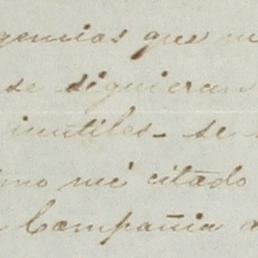 gencias que
se siguieran
inutiles - se
mo mi citado
Compañia